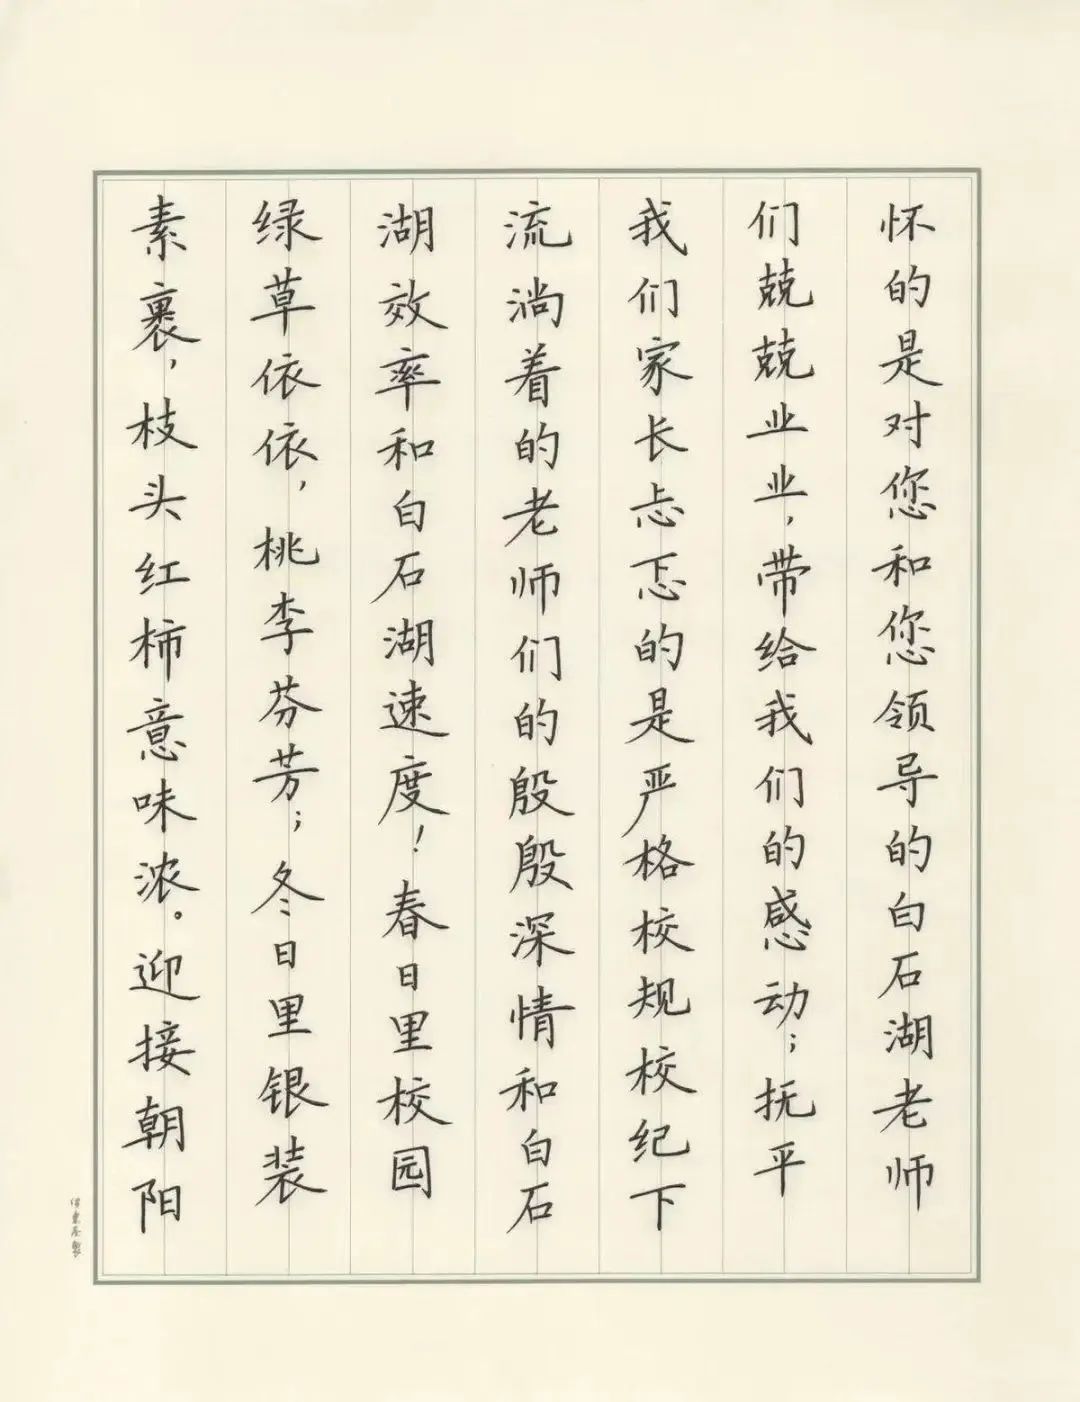 怀的是对您和您领导的白石湖老师
们兢兢业业，带给我们的感动；抚平
我们家长忐忑的是严格校规校纪下
流淌着的老师们的殷殷深情和白石
湖效率和白石湖速度！春日里校园
绿草依依，桃李芬芳；冬日里银装
素裹，枝头红柿意味浓。迎接朝阳